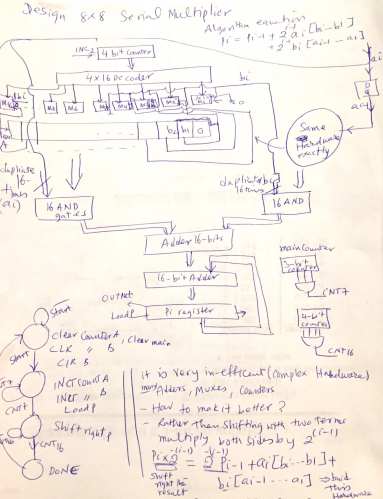 Design 8x8 Serial Multiplier
Algorithm equation
Pi = Pi-1 + 2^i ai [bi---b1]
+ 2^-i bi [ai-1 --- a1]
INC2
4 bit counter
4 x 16 Decoder
bi
bi
ai
D
ai-1
M8
M7
M6
0
b2 b1 0
A
Same
Hardware
exactly
duplicate
16-
times
(ai)
duplicate bi
16 times
16 AND
gates
16 AND
Adder 16-bits
16-bit Adder
OUTnet
LoadP
Pi register
main counter
3-bit
counter
CNT7
4-bit
counter
CNT16
Start
Start
Clear Counter A, clear main
CLR " B
CLR B
INC count A
INC " B
Load P
CNT7
CNT7
Shift right P
CNT16
DONE
It is very in-efficient (complex Hardware)
many Adders, Muxes, Counters
- How to make it better?
- Rather than shifting with two terms
multiply both sides by 2^-(i-1)
Pi x 2^-(i-1) = 2^-(i-1) Pi-1 + ai [bi---b1] +
Shift
right the
result
bi [ai-1 --- a1] → build
this
Hardware